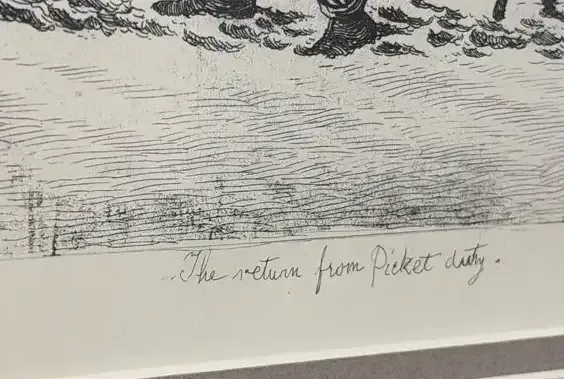 The return from Picket duty.